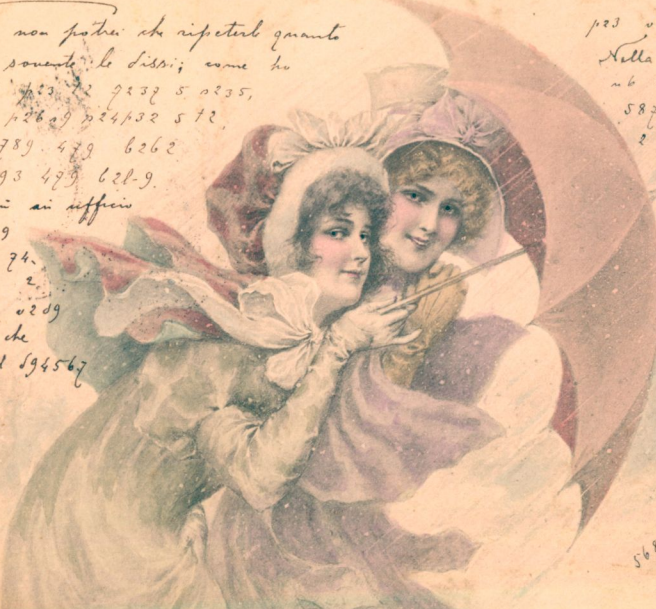 non potrei che ripeterti quanto
sovente le dissi; come ho
p23 72 7237 5 n235,
p26n9 n24p32 5 t2,
789 479 6262
93 479 62l-9.
in ufficio
9
74.
2
o2d9
che
d94567
p23
Nella
n6
587
2
568